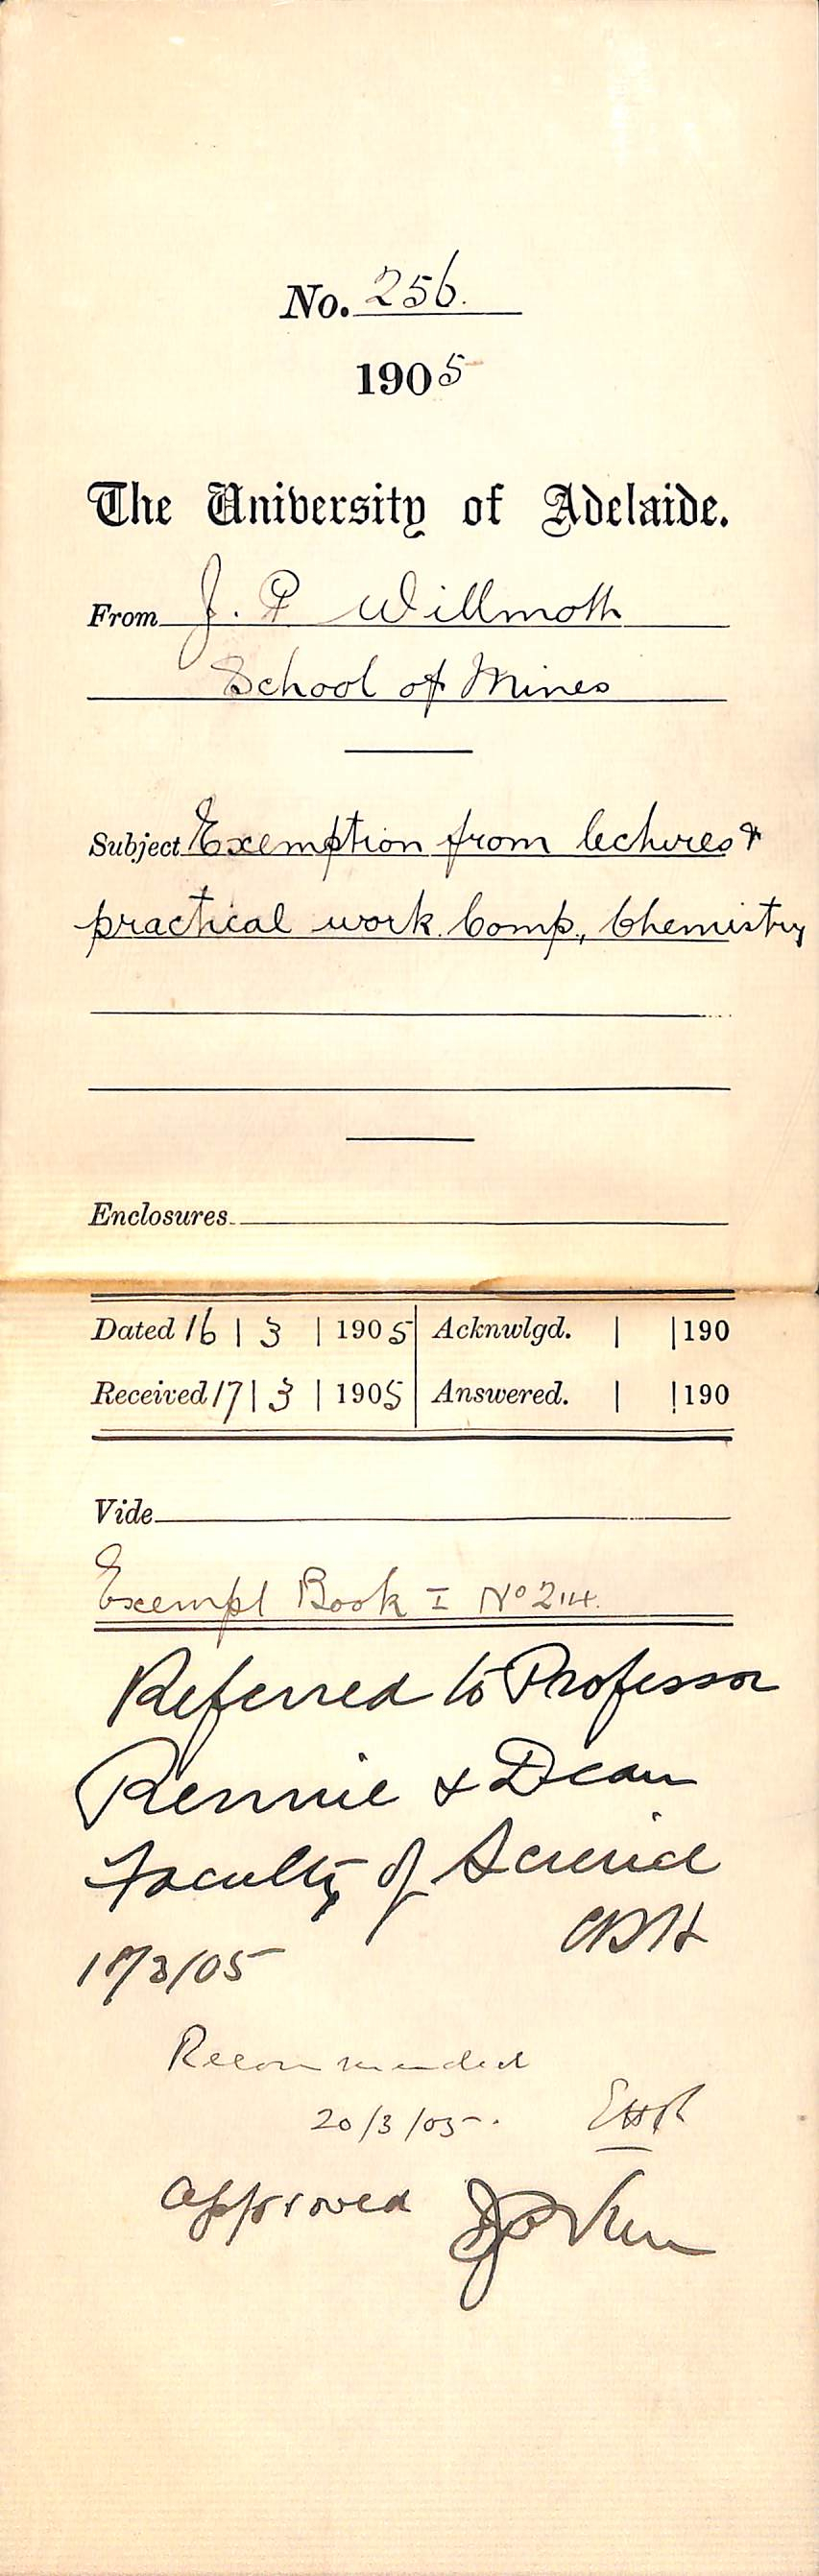 No. 256.
1905
The University of Adelaide.
From J. P Willmoth
School of Mines
Subject Exemption from lectures &
practical work. Comp., Chemistry
Enclosures
Dated 16 | 3 | 1905 Acknwlgd. | | 190
Received 17 | 3 | 1905 Answered. | | 190
Vide
Exempl Book I No 214.
Referred to Professor
Rennie & Dean
Faculty of Science
17/3/05
Recommended
20/3/05. EHR
Approved